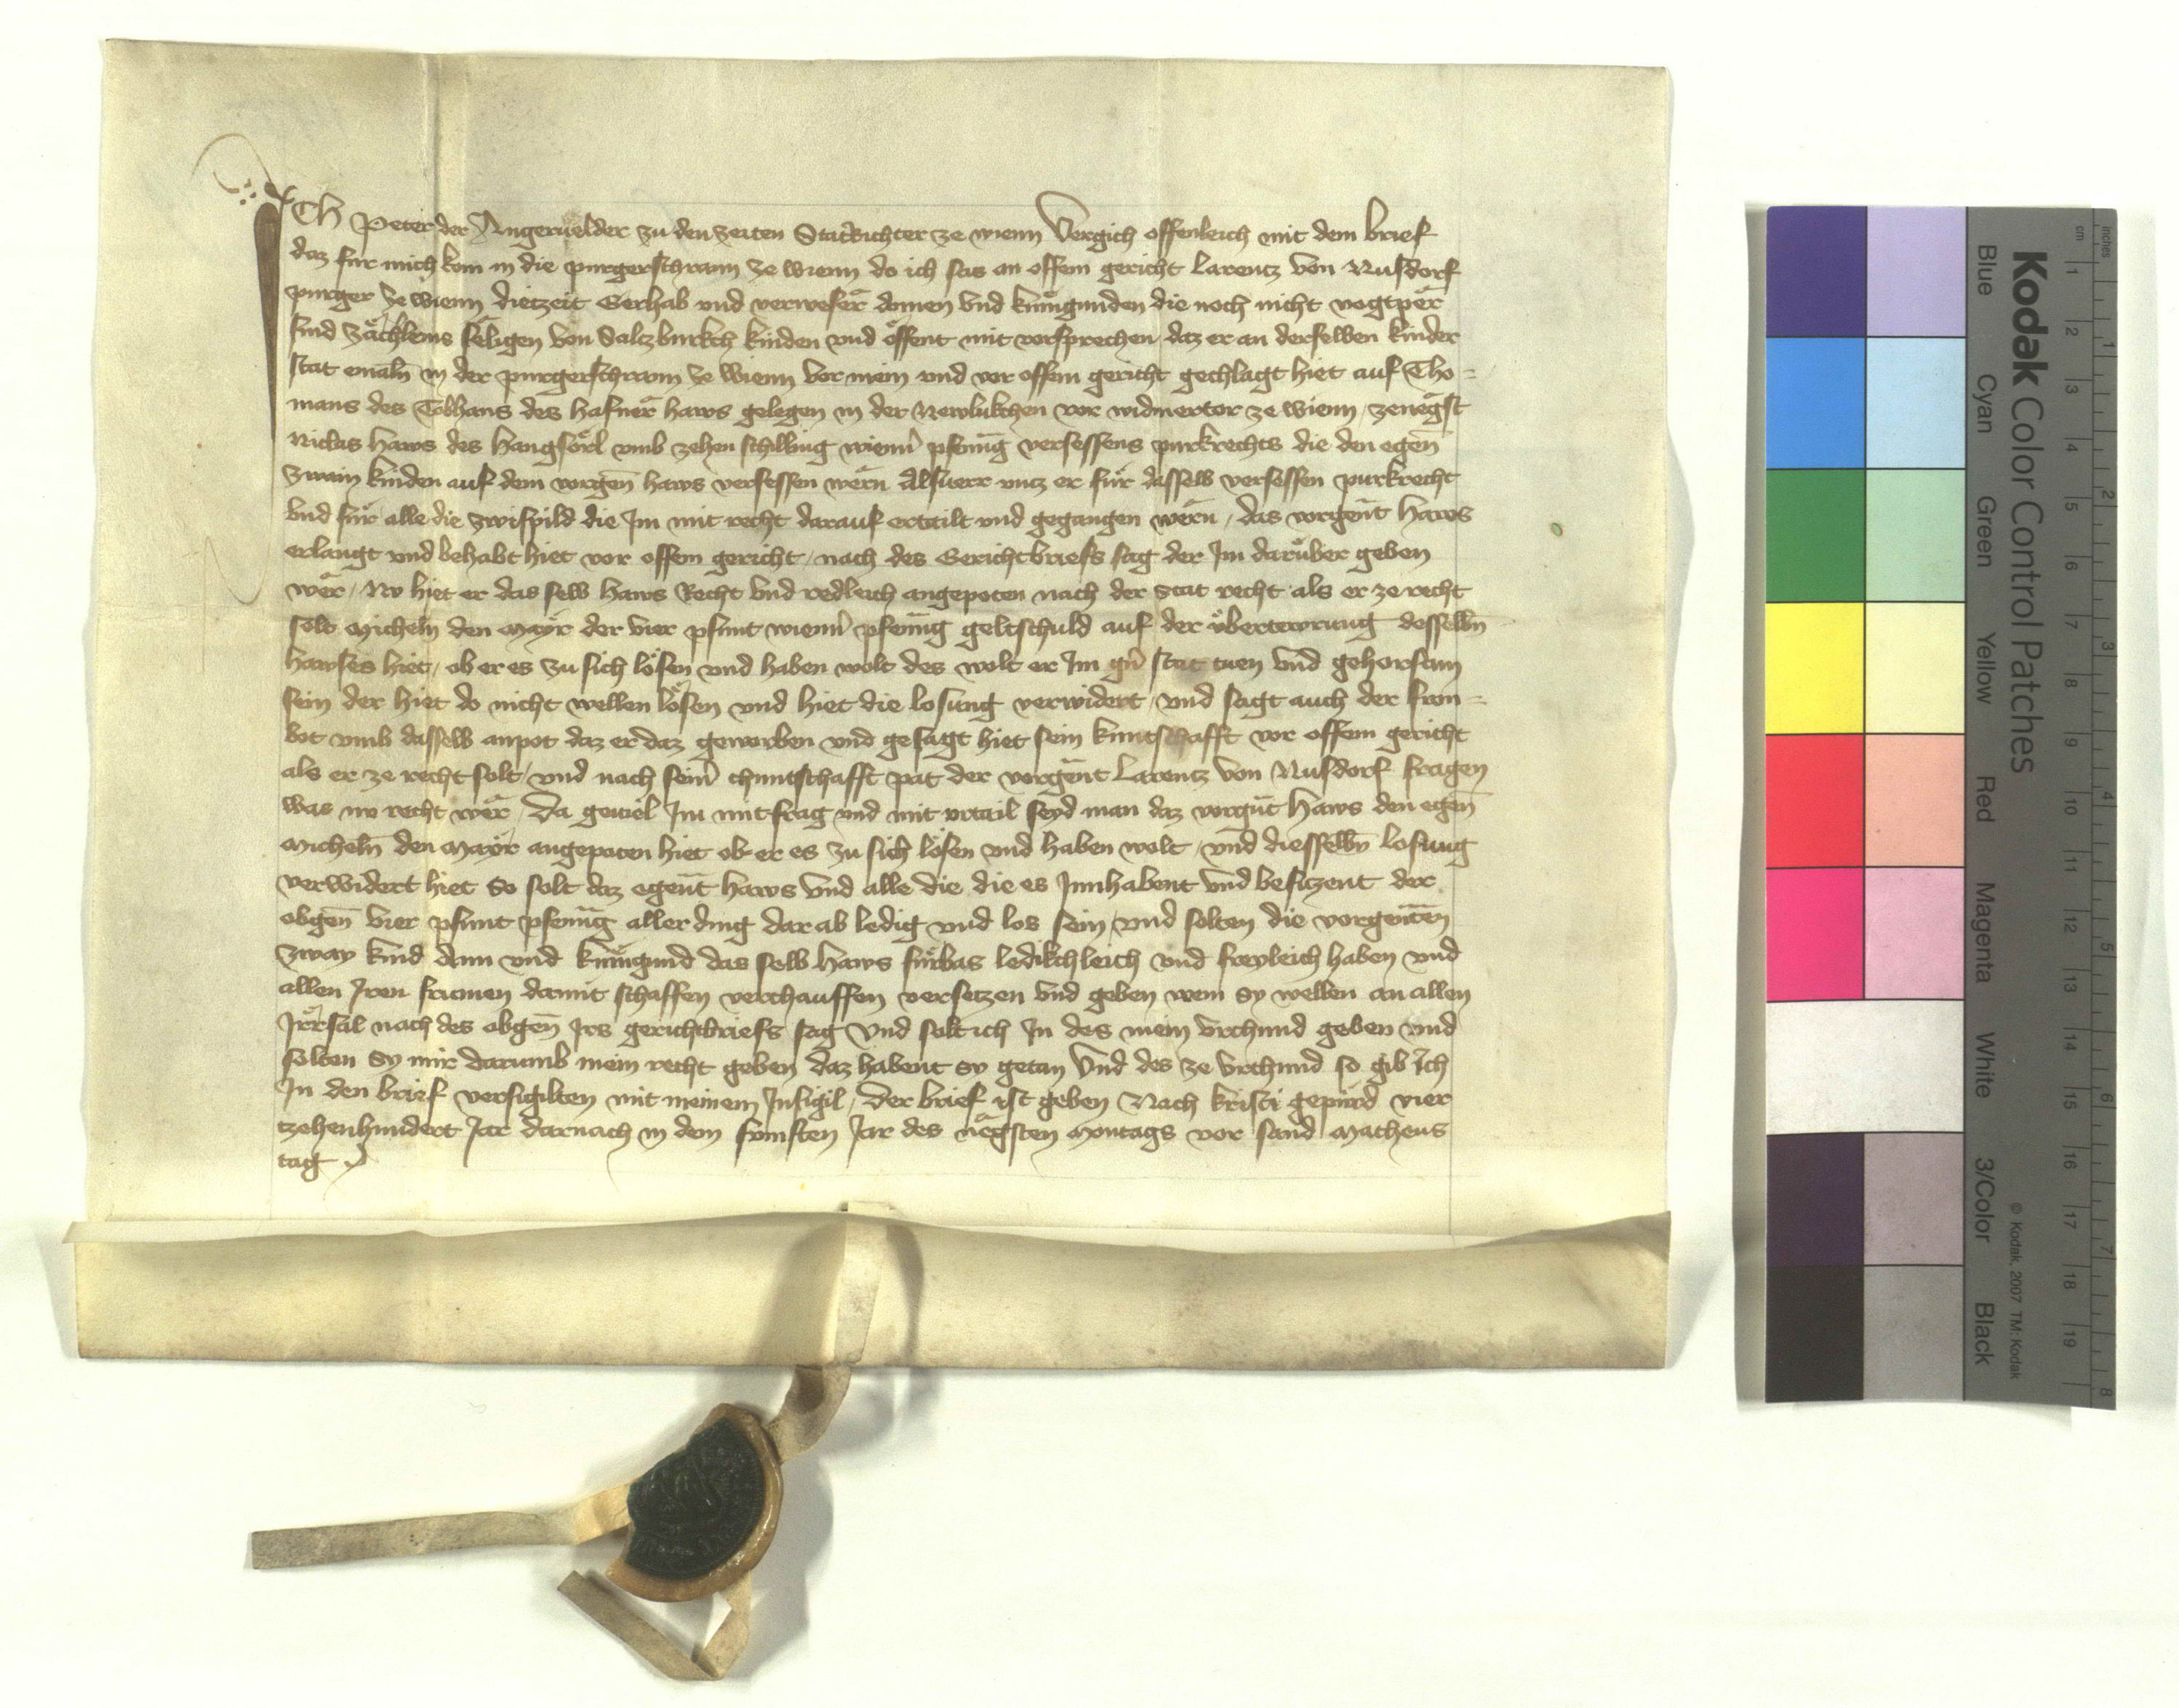 Ich Peter der Angeruelder zu den zeiten Statrichter ze wienn Vergich offenleich mit dem brief
daz fur mich kom in die purgerschrann ze wienn do ich sas an offem gericht Larentz von Nusdorf
purger ze wienn dietzeit Gerhab und verweser annen vnd kunigunden die noch nicht vogtper
sind seligen von Saltzburkch kinden vnd offent mit vorsprechen daz er an derselben kinder
stat emaln in der purgerschrann ze wienn vor mein vnd vor offem gericht gechlagt hiet auf Tho=
mans des haws gelegen in der Newlukchen vor widmertor ze wienn / zenegst
Niclas haws des vmb zehen schilling wienn̄ pfenīg versessens purkrechts die den egen̄
zwain kinden auf dem vorgen̄ haws versessen wern Alsuerr vntz er für dasselb versessen purkrecht
vnd für alle die zwispild die Im mit recht darauf ertailt vnd gegangen wern / das vorgen̄t haws
erlangt vnd behabt hiet vor offem gericht / nach des Gerichtbriefs sag der Im darüber geben
wer / Nv hiet er das selb haws Recht vnd redleich angepoten nach der Stat recht als er ze recht
solt Micheln den Mayr der vier pfunt wienn̄ pfenīg geltschuld auf der vberterwrung desselbn̄
hawses hiet / ob er es zu sich lösen vnd haben wolt des wolt er Im gn̄ stat tuen vnd gehorsam
sein der hiet do nicht wellen lösen vnd hiet die losung verwidert / vnd sagt auch der fron=
bot vmb dasselb anpot daz er daz geworben vnd gesagt hiet sein kuntschafft vor offem gericht
als er ze recht solt / vnd nach sein̄ chuntschafft pat der vorgen̄t Larentz von Nusdorf fragen
was nv recht wer / Da geuiel Im mit frag vnd mit vrtail seyd man daz vorgn̄t haws den egen̄
Micheln̄ den Mayr angepoten hiet ob er es zu sich lösen vnd haben wolt / vnd diesselbn̄ losung
verwidert hiet So solt daz egen̄t haws vnd alle die die es Innhabent vnd besitzent der
obgen̄ vier pfunt pfenīg aller ding dar ab ledig vnd los sein / vnd solten die vorgen̄ten
zway kind Ann vnd kunigund das selb haws fürbas ledikchleich vnd freyleich haben vnd
allen Iren frumen damit schaffen verchauffen versetzen vnd geben wem sy wellen an allen
Irrsal nach des obgen̄ Irs gerichtbriefs sag Vnd solt ich In des mein vrchund geben vnd
solten Sy mir darumb mein recht geben daz habent sy getan Vnd des ze vrchund so gib Ich
In den brief versigilten mit meinem Insigil / Der brief ist geben Nach kristi gepurd vier
tzehenhundert Jar darnach in dem fumften Jar des negsten Montags vor sand Matheus
tag
Kodak Color Control Patches
Blue Cyan Green Yellow Red Magenta White 3/Color Black
© Kodak, 2007 TM: Kodak
cm 1 2 3 4 5 6 7 8 9 10 11 12 13 14 15 16 17 18 19
inches 1 2 3 4 5 6 7 8